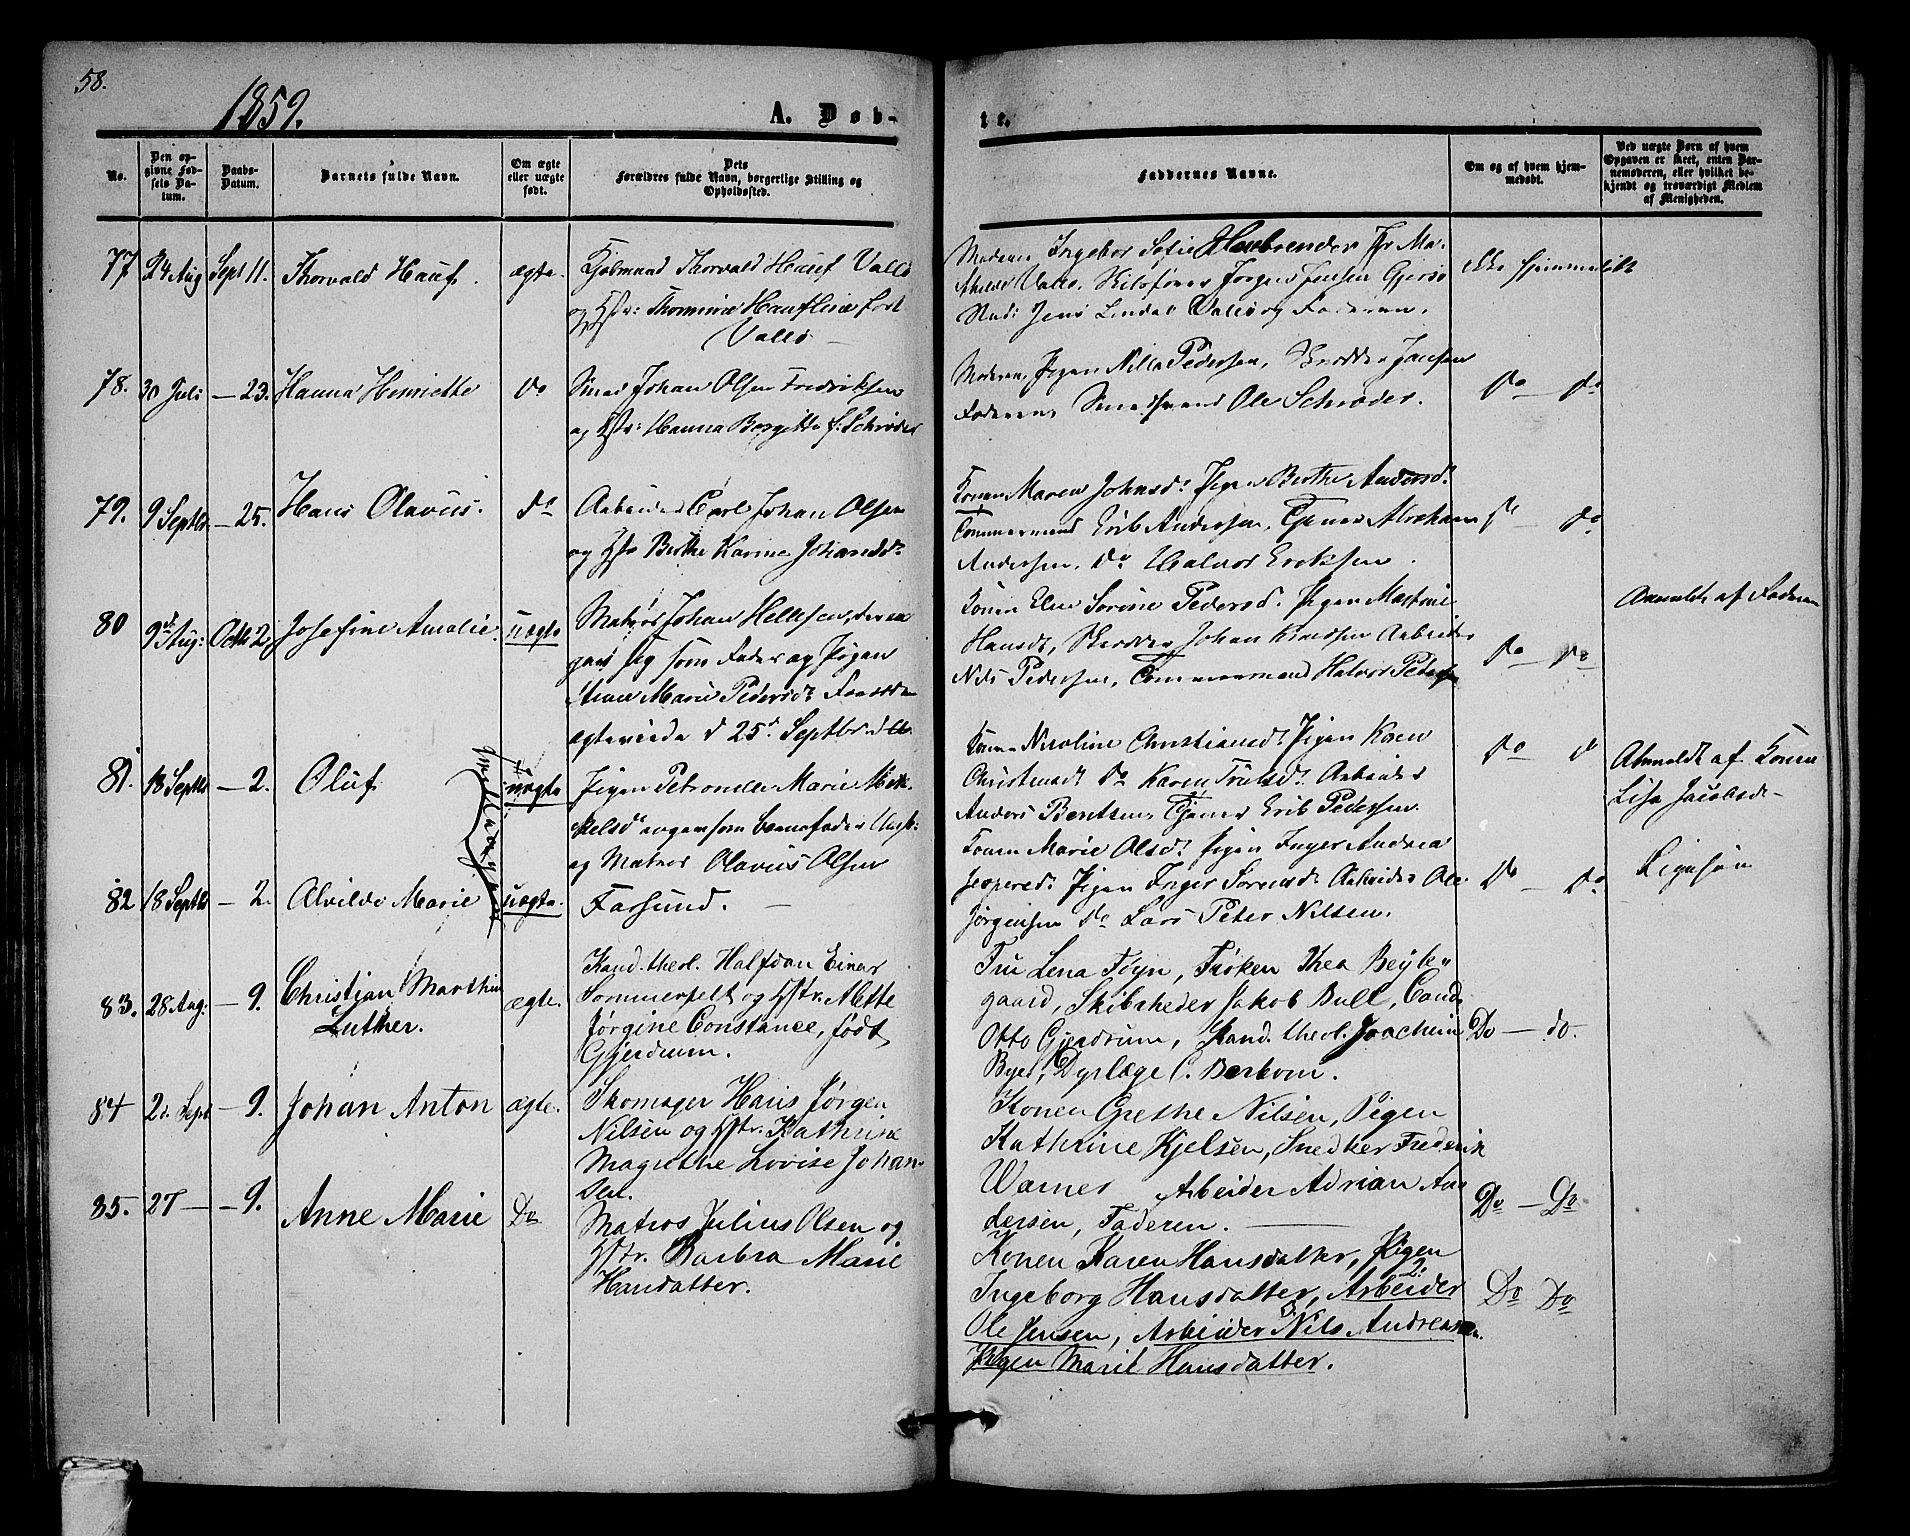 58.
1859.
A. Døb-
te.
No.
Den op-
givne Fød-
sels Da-
tum.
Daabs-
Datum.
Barnets fulde Navn.
Om ægte
eller uægte
født.
Dets
Forældres fulde Navn, borgerlige Stilling og
Opholdssted.
Faddernes Navne.
Om og af hvem hjem-
medøbt.
Ved uægte Børn af hvem
Opgaven er skeet, enten Bar-
nemoderen, eller hvilket be-
kjendt og troværdigt Medlem
af Menigheden.
77 24 Aug Sept 11. Thorvald Hauf. ægte.
Thorvald Hauf Vallö
og Hstr: Hauf
Vallö
Moderen Ingebor Sofie
Vallö, Jørgen Jensen
Jens Lindal Vallö og Faderen.
ikke hjemmedøbt
78. 30 Juli — 23. Hanna Henriette do
Smed Johan Olsen Fredriksen
og Hstr: Hanna Bergitte f. Schrøder
Moderen, Pigen Pedersen, Jansen
Faderen, Ole Schrøder.
do — do
79. 9 Septbr — 25. Hans Olavus. do
Arbeider Carl Johan Olsen
og Hstr Berthe Karine Johansd.
Konen Maren Johnsd. Pigen Berthe Andersd.
Tømmermand Erik Andersen, Tjener Abraham
Andersen, do Halvor Eriksen.
do
80 9de Aug: Octb 2. Josefine Amalie. uægte
Matros Johan Hellesen, der an
gav sig som Fader og Pigen
Marie Pedersd.
d 25d Septbr d. A.
Konen Sorine Pedersd. Pigen
Hansd, Skredder Johan Knudsen Arbeider
Nils Pedersen, Tømmermand Halvor Pedersen
do — do
Anmeldt af Faderen
81. 18 Septbr — 2. Oluf uægte
Pigen Petronelle Marie Mik-
kelsd. som barnefader
og Matros Olavus Olsen
Konen Nicoline Christiansd. Pigen Karen
Christensd do Karen Trulsd. Arbeider
Anders Berntsen, Tjener Erik Pedersen.
do
Anmeldt af Konen
Lisa Jacobsd—
82 18 Septbr — 2. Alvilde Marie uægte.
Farsund. —
Konen Marie Olsd. Pigen Inger Andrea
Jespersd. Pigen Inger Sorensd. Arbeider Ole
Jørgensen do Lars Peter Nilsen.
do — do.
Ligesaa
83. 28 Aug: — 9. Christian Marthin
Luther.
ægte.
Kand. theol. Halfdan Einar
Sommerfelt og Hstr. Alette
Jørgine Constance, født
Gjerdrum.
Fru Lena Føyn, Frøken Thea Beyle-
gaard, Skibsreder Jakob Bull, Cand.
Otto Gjerdrum, Kand. theol. Joachim
Byer, Dyrlæge C. Berbom.
Do — do.
84 Sept — 9. Johan Anton ægte.
Skomager Hans Jørgen
Nilsen og Hstr. Kathrine
Magrethe Lovise Johan-
sen.
Konen Grethe Nilsen, Pigen
Kathrine Kjelsen, Snedker Frederik
Warnes Arbeider Adrian An-
dersen, Faderen. —
Do — Do
85. 27 — — 9. Anne Marie Do
Matros Julius Olsen og
Hstr. Barbra Marie
Hansdatter.
Konen Karen Hansdatter, Pigen
Ingeborg Hansdatter, Arbeider
Ole Jensen, Arbeider Nils Andreasen.
Pigen Marie Hansdatter.
Do Do